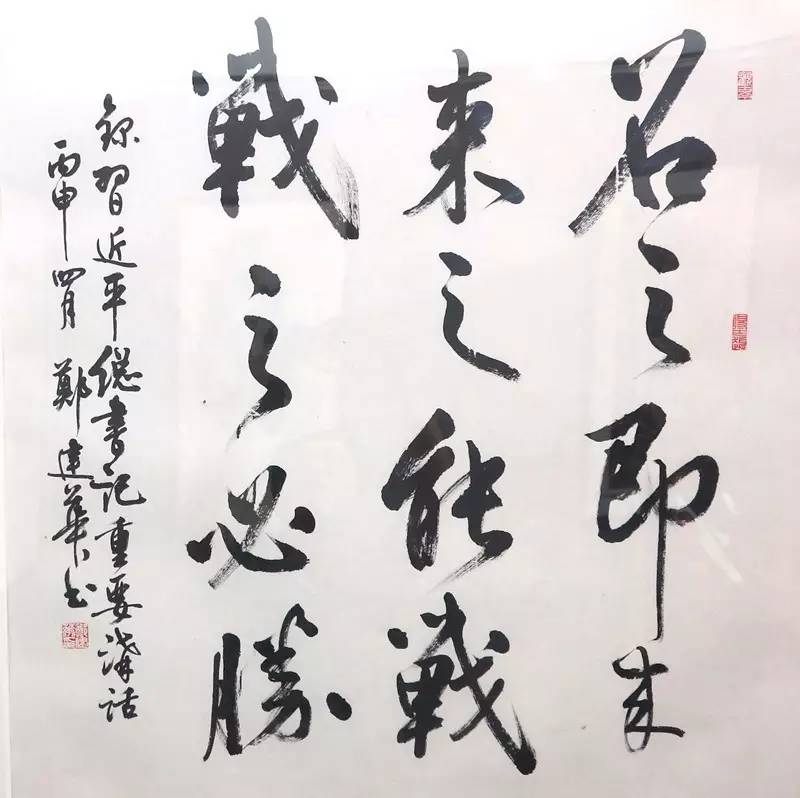 召之即来
来之能戰
戰之必勝
錄習近平總書記重要講話
丙申四月 鄭建華书